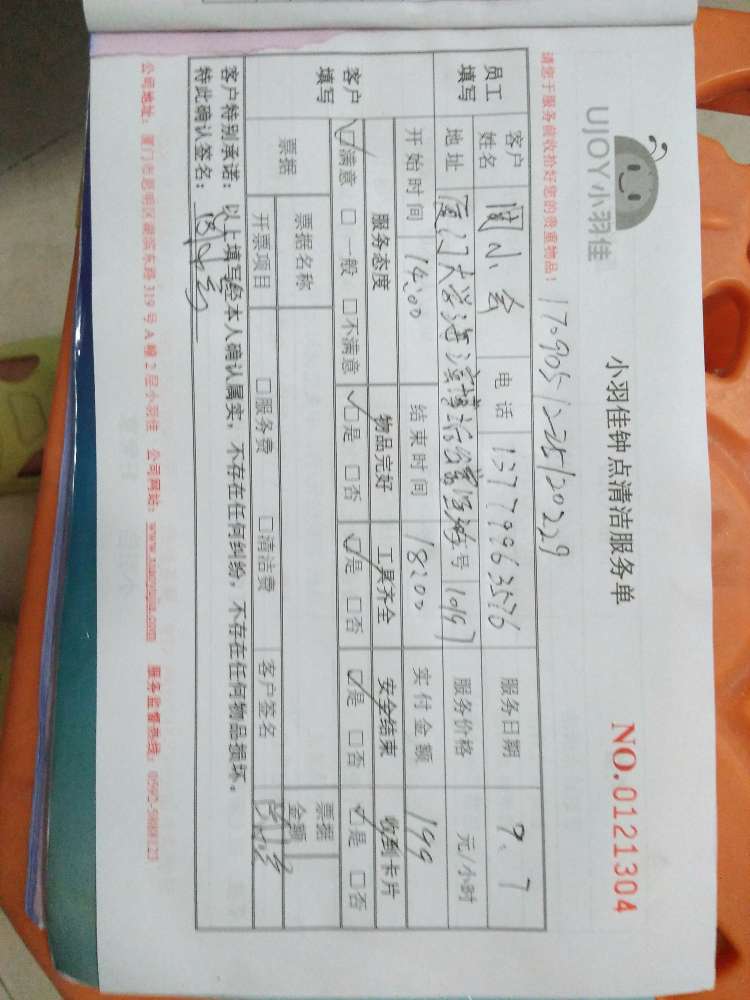 UJOY小羽佳
小羽佳钟点清洁服务单
NO.0121304
请您于服务前收拾好您的贵重物品！
员工填写
客户姓名 周小会 电话 13779963576 服务日期 9.7
地址 厦门大学 号 服务价格 元/小时
开始时间 14:00 结束时间 18:00 实付金额 199
客户填写
服务态度 物品完好 工具齐全 安全结束 收到卡片
☑满意 □一般 □不满意 ☑是 □否 ☑是 □否 ☑是 □否 ☑是 □否
票据 票据名称 票据金额
开票项目 □服务费 □清洁费 客户签名
客户特别承诺：以上填写经本人确认属实，不存在任何纠纷，不存在任何物品损坏。
特此确认签名：
公司地址：厦门市思明区湖滨东路319号A幢2层小羽佳 公司网站：www.xiaoyujia.com 服务监督热线：0592-5888123